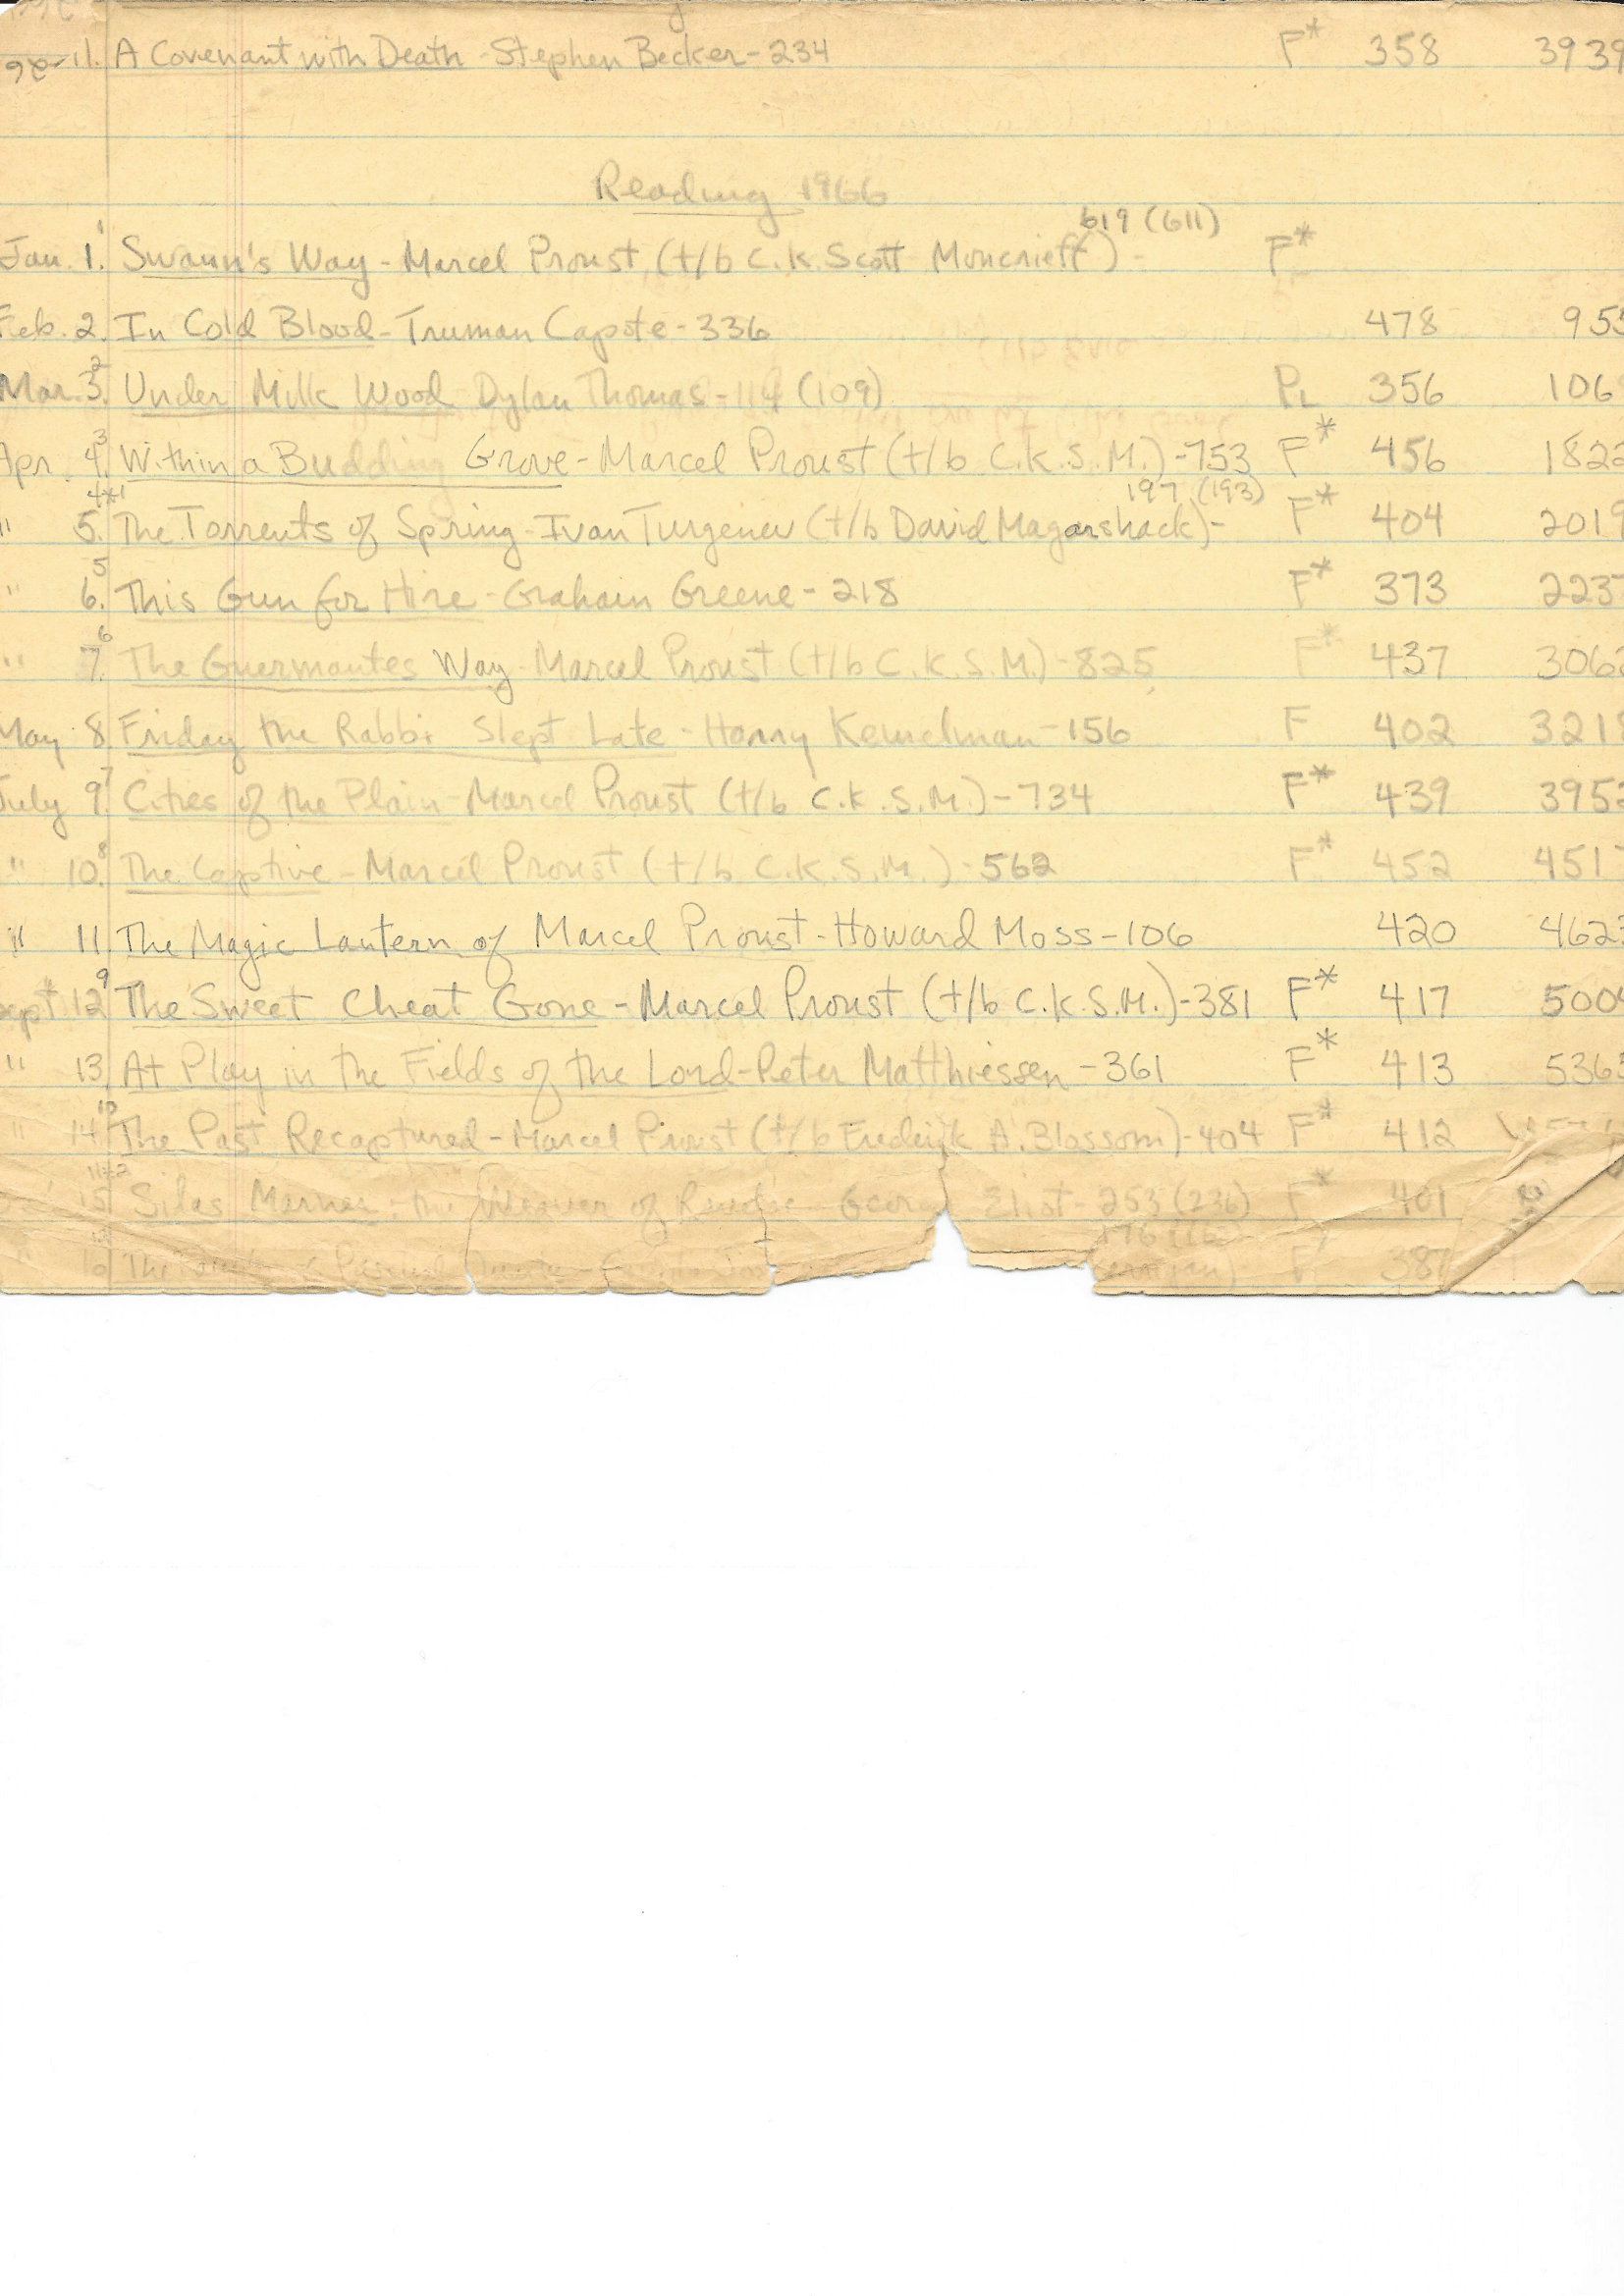 11. A Covenant with Death - Stephen Becker - 234 F* 358 3939
Reading 1966
619 (611)
Jan. 1. 1 Swann's Way - Marcel Proust (t/b C.K. Scott Moncrieff) - F*
Feb. 2. In Cold Blood - Truman Capote - 336 478 955
Mar. 3. 2 Under Milk Wood Dylan Thomas - 114 (109) PL 356 106
Apr. 4. 3 Within a Budding Grove - Marcel Proust (t/b C.K.S.M.) - 753 F* 456 1822
4*1 197 (193)
" 5. The Torrents of Spring - Ivan Turgenev (t/b David Magarshack) - F* 404 2019
" 6. 5 This Gun for Hire - Graham Greene - 218 F* 373 223
" 7. 6 The Guermantes Way - Marcel Proust (t/b C.K.S.M.) - 825 F* 437 3062
May 8. Friday the Rabbi Slept Late - Harry Kemelman - 156 F 402 3218
July 9. 7 Cities of the Plain - Marcel Proust (t/b C.K.S.M.) - 734 F* 439 3952
" 10. 8 The Captive - Marcel Proust (t/b C.K.S.M.) - 562 F* 452 451
" 11. The Magic Lantern of Marcel Proust - Howard Moss - 106 420 462
Sept 12. 9 The Sweet Cheat Gone - Marcel Proust (t/b C.K.S.M.) - 381 F* 417 500
" 13. At Play in the Fields of the Lord - Peter Matthiessen - 361 F* 413 536
" 14. 10 The Past Recaptured - Marcel Proust (t/b Frederick A. Blossom) - 404 F* 412
15. 11*2 Silas Marner: the Weaver of Eliot - 253 (236) F* 401
176
16 The F 387